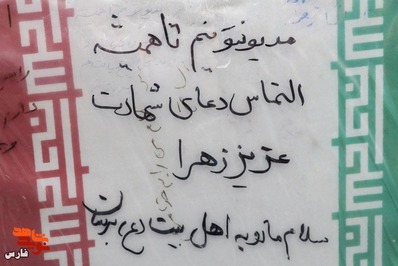 مدیونیتونیم تا همیشه
التماس دعای شهادت
عزیز زهرا
سلام مارو به اهل بیت (ع) برسان
فارس